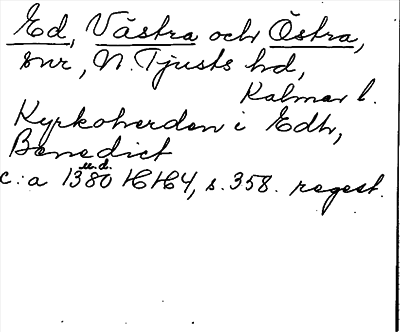 Ed, Västra och Östra,
snr, N. Tjusts hd,
Kalmar l.
Kyrkoherden i Edh,
Benedict
u.d.
c:a 1380 HH4, s. 358. regest.